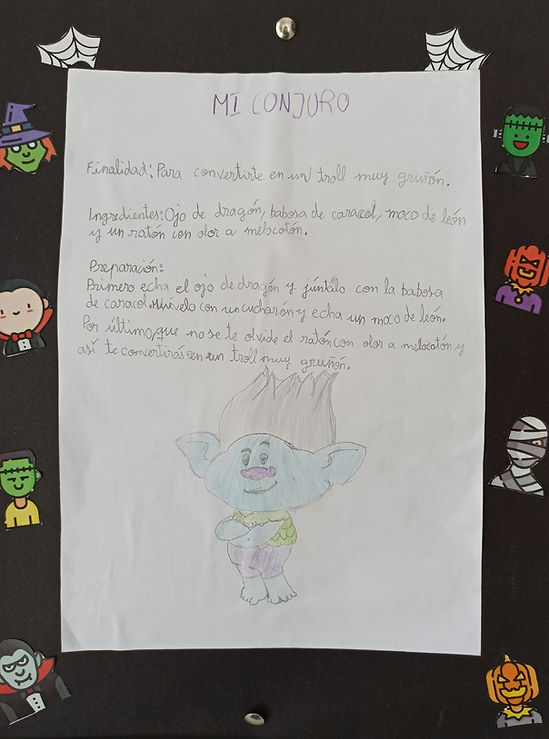 MI CONJURO
Finalidad: Para convertirte en un troll muy gruñón.
Ingredientes: Ojo de dragón, babosa de caracol, moco de león
y un ratón con olor a melocotón.
Preparación:
Primero echa el ojo de dragón y júntalo con la babosa
de caracol. Muévelo con un cucharón y echa un moco de león.
Por último, que no se te olvide el ratón con olor a melocotón y
así te convertirás en un troll muy gruñón.